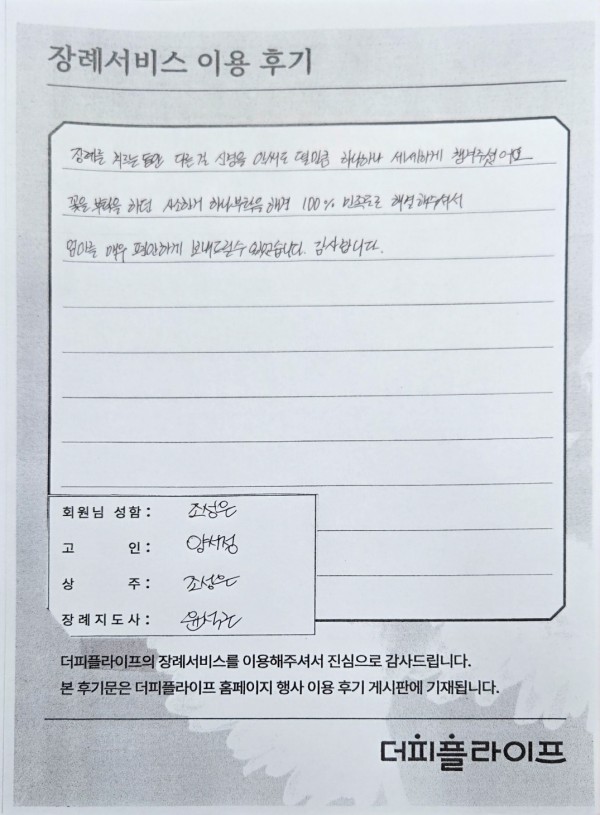 장례서비스 이용 후기
장례를 치르는 동안 다른걸 신경을 안써도 될만큼 하나하나 세세하게 챙겨주셨어요
꽃을 부탁을 하던 사소하거 하나부탁을해도 100% 만족으로 해결해주셔서
엄마를 매우 편안하게 보내드릴수 있었습니다. 감사합니다.
회원님 성함 : 조성은
고 인 : 양서정
상 주 : 조성은
장례지도사 :
더피플라이프의 장례서비스를 이용해주셔서 진심으로 감사드립니다.
본 후기문은 더피플라이프 홈페이지 행사 이용 후기 게시판에 기재됩니다.
더피플라이프